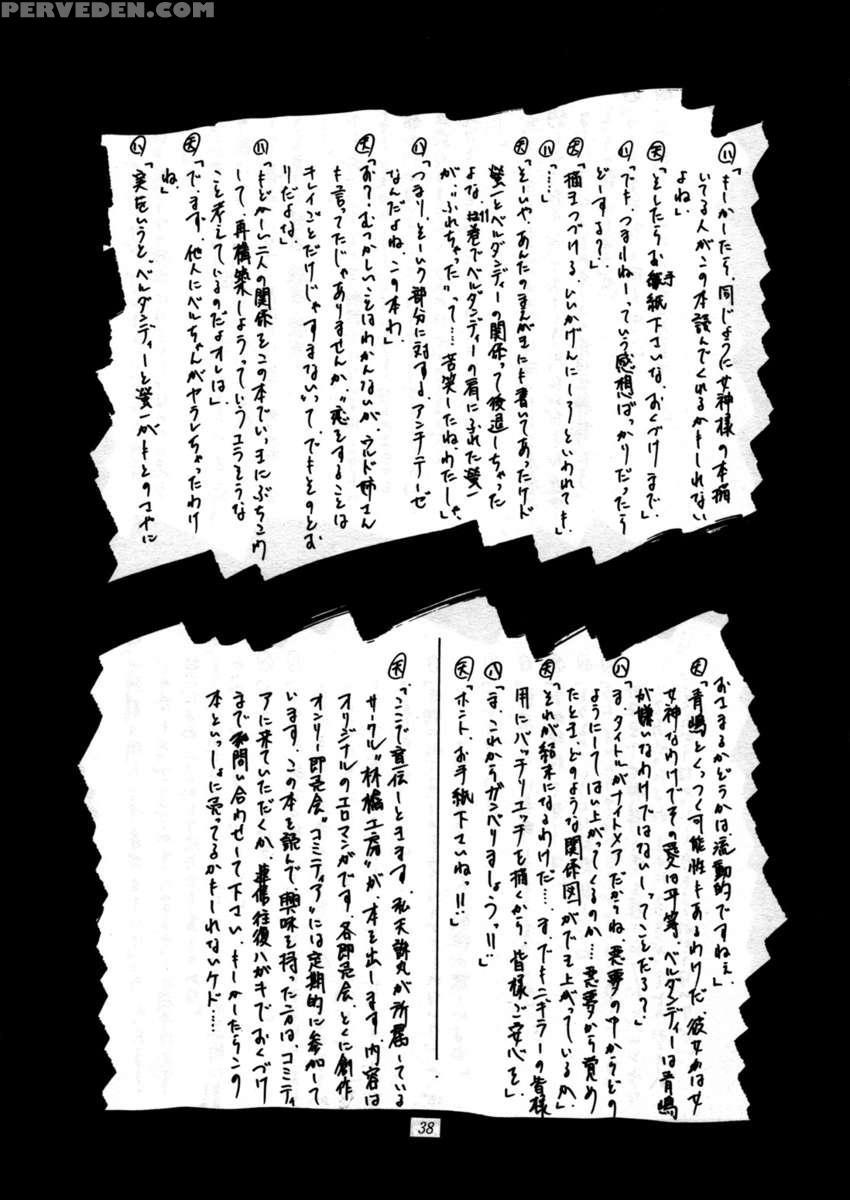 PERVEDEN.COM
(八)「もしかしたら、同じように女神様の本描
いてる人がこの本読んでくれるかもしれない
よね」
(天)「そしたらお手紙下さいな、おくづけまで」
(八)「でも、つまんねーっていう感想ばっかりだったら
どーする?」
(天)「描きつづける、いいかげんにしろといわれても」
(八)「……」
(天)「そーいや、あんたのまんがきにも書いてあったケド
螢一とベルダンディーの関係って後退しちゃった
よな、11巻でベルダンディーの肩にふれた螢一
が、"ふれちゃった"って……苦笑したね、わたしゃ」
(八)「つまり、そーいう部分に対するアンチテーゼ
なんだよね、この本わ」
(天)「お?むつかしいことはわかんないが、ウルド姉さん
も言ってたじゃありませんか、"恋をすることは
キレイごとだけじゃすまない"って、でもそのとお
りだよな」
(八)「もどかしい二人の関係をこの本でいっきにぶちこわ
して、再構築しようっていうエラそうな
こと考えているのだよオレは」
(天)「で、まず、他人にベルちゃんがヤラレちゃったわけ
ね」
(八)「実をいうと、ベルダンディーと螢一がもとのさやに
おさまるかどうかは、流動的ですねぇ」
(天)「青嶋とくっつく可能性もあるわけだ、彼女かは女
女神なわけでその愛は平等、ベルダンディーは青嶋
が嫌いなわけではないしってことだろ?」
(八)「ま、タイトルがナイトメアだからね、悪夢の中からどの
ようにしてはい上がってくるのか……悪夢から覚め
たとき、どのような関係図ができ上がっているか」
(天)「それが結末になるわけだ……ま、でもニヂラーの皆様
用にバッチリエッチを描くから、皆様ご安心を」
(八)「ま、これからガンバりましょうっ!!」
(天)「ホント、お手紙下さいねっ!!」
(天)「ここで宣伝しときます、私天誅丸が所属している
サークル"林檎工房"が、本を出します、内容は
オリジナルのエロマンガです、各即売会、とくに創作
オンリー即売会"コミティア"には定期的に参加して
います、この本を読んで、興味を持った方は、コミティ
アに来ていただくか、往復ハガキで、おくづけ
まで問い合わせして下さい、もしかしたらこの
本といっしょに売ってるかもしれないケド……
38